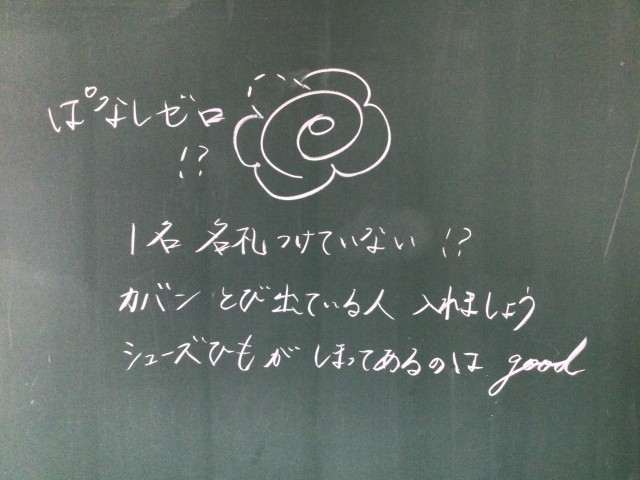 ぱなしゼロ
!?
1名 名札つけていない !?
カバン とび出ている人 入れましょう
シューズひもが しまってあるのは good